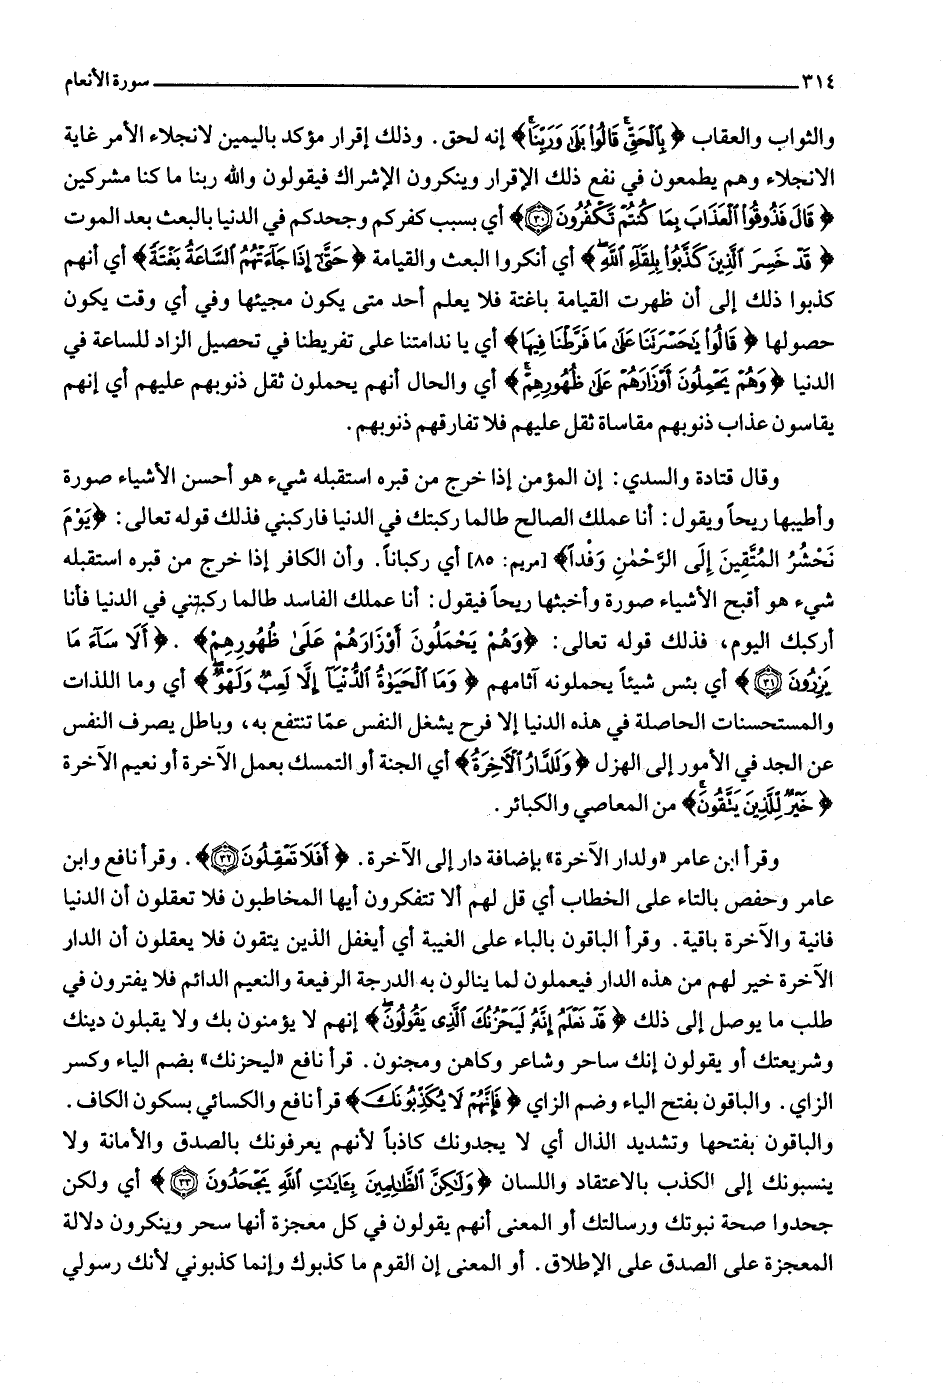 ٣١٤ سورة الأنعام
والثواب والعقاب ﴿ بِالْحَقِّ قَالُوا بَلَىٰ وَرَبِّنَا﴾ إنه لحق. وذلك إقرار مؤكد باليمين لانجلاء الأمر غاية
الانجلاء وهم يطمعون في نفع ذلك الإقرار وينكرون الإشراك فيقولون والله ربنا ما كنا مشركين
﴿ قَالَ فَذُوقُوا الْعَذَابَ بِمَا كُنتُمْ تَكْفُرُونَ ٣٠﴾ أي بسبب كفركم وجحدكم في الدنيا بالبعث بعد الموت
﴿ قَدْ خَسِرَ الَّذِينَ كَذَّبُوا بِلِقَاءِ اللَّهِ﴾ أي أنكروا البعث والقيامة ﴿ حَتَّىٰ إِذَا جَاءَتْهُمُ السَّاعَةُ بَغْتَةً﴾ أي أنهم
كذبوا ذلك إلى أن ظهرت القيامة باغتة فلا يعلم أحد متى يكون مجيئها وفي أي وقت يكون
حصولها ﴿ قَالُوا يَٰحَسْرَتَنَا عَلَىٰ مَا فَرَّطْنَا فِيهَا﴾ أي يا ندامتنا على تفريطنا في تحصيل الزاد للساعة في
الدنيا ﴿ وَهُمْ يَحْمِلُونَ أَوْزَارَهُمْ عَلَىٰ ظُهُورِهِمْ﴾ أي والحال أنهم يحملون ثقل ذنوبهم عليهم أي إنهم
يقاسون عذاب ذنوبهم مقاساة ثقل عليهم فلا تفارقهم ذنوبهم.
وقال قتادة والسدي: إن المؤمن إذا خرج من قبره استقبله شيء هو أحسن الأشياء صورة
وأطيبها ريحاً ويقول: أنا عملك الصالح طالما ركبتك في الدنيا فاركبني فذلك قوله تعالى: ﴿يَوْمَ
نَحْشُرُ المُتَّقِينَ إِلَى الرَّحْمٰنِ وَفْداً﴾ [مريم: ٨٥] أي ركباناً. وأن الكافر إذا خرج من قبره استقبله
شيء هو أقبح الأشياء صورة وأخبثها ريحاً فيقول: أنا عملك الفاسد طالما ركبتني في الدنيا فأنا
أركبك اليوم، فذلك قوله تعالى: ﴿وَهُمْ يَحْمَلُونَ أَوْزَارَهُمْ عَلَىٰ ظُهُورِهِمْ﴾ . ﴿ أَلَا سَآءَ مَا
يَزِرُونَ ٣١﴾ أي بئس شيئاً يحملونه آثامهم ﴿ وَمَا الْحَيَوٰةُ الدُّنْيَآ إِلَّا لَعِبٌ وَلَهْوٌ﴾ أي وما اللذات
والمستحسنات الحاصلة في هذه الدنيا إلا فرح يشغل النفس عمّا تنتفع به، وباطل يصرف النفس
عن الجد في الأمور إلى الهزل ﴿ وَلَلدَّارُ الْآخِرَةُ﴾ أي الجنة أو التمسك بعمل الآخرة أو نعيم الآخرة
﴿ خَيْرٌ لِّلَّذِينَ يَتَّقُونَ﴾ من المعاصي والكبائر.
وقرأ ابن عامر «ولدار الآخرة» بإضافة دار إلى الآخرة. ﴿ أَفَلَا تَعْقِلُونَ ٣٢﴾. وقرأ نافع وابن
عامر وحفص بالتاء على الخطاب أي قل لهم ألا تتفكرون أيها المخاطبون فلا تعقلون أن الدنيا
فانية والآخرة باقية. وقرأ الباقون بالياء على الغيبة أي أيغفل الذين يتقون فلا يعقلون أن الدار
الآخرة خير لهم من هذه الدار فيعملون لما ينالون به الدرجة الرفيعة والنعيم الدائم فلا يفترون في
طلب ما يوصل إلى ذلك ﴿ قَدْ نَعْلَمُ إِنَّهُ لَيَحْزُنُكَ الَّذِي يَقُولُونَ﴾ إنهم لا يؤمنون بك ولا يقبلون دينك
وشريعتك أو يقولون إنك ساحر وشاعر وكاهن ومجنون. قرأ نافع «ليحزنك» بضم الياء وكسر
الزاي. والباقون بفتح الياء وضم الزاي ﴿ فَإِنَّهُمْ لَا يُكَذِّبُونَكَ﴾ قرأ نافع والكسائي بسكون الكاف.
والباقون بفتحها وتشديد الذال أي لا يجدونك كاذباً لأنهم يعرفونك بالصدق والأمانة ولا
ينسبونك إلى الكذب بالاعتقاد واللسان ﴿ وَلَٰكِنَّ الظَّٰلِمِينَ بِـَٔايَٰتِ اللَّهِ يَجْحَدُونَ ٣٣﴾ أي ولكن
جحدوا صحة نبوتك ورسالتك أو المعنى أنهم يقولون في كل معجزة أنها سحر وينكرون دلالة
المعجزة على الصدق على الإطلاق. أو المعنى إن القوم ما كذبوك وإنما كذبوني لأنك رسولي